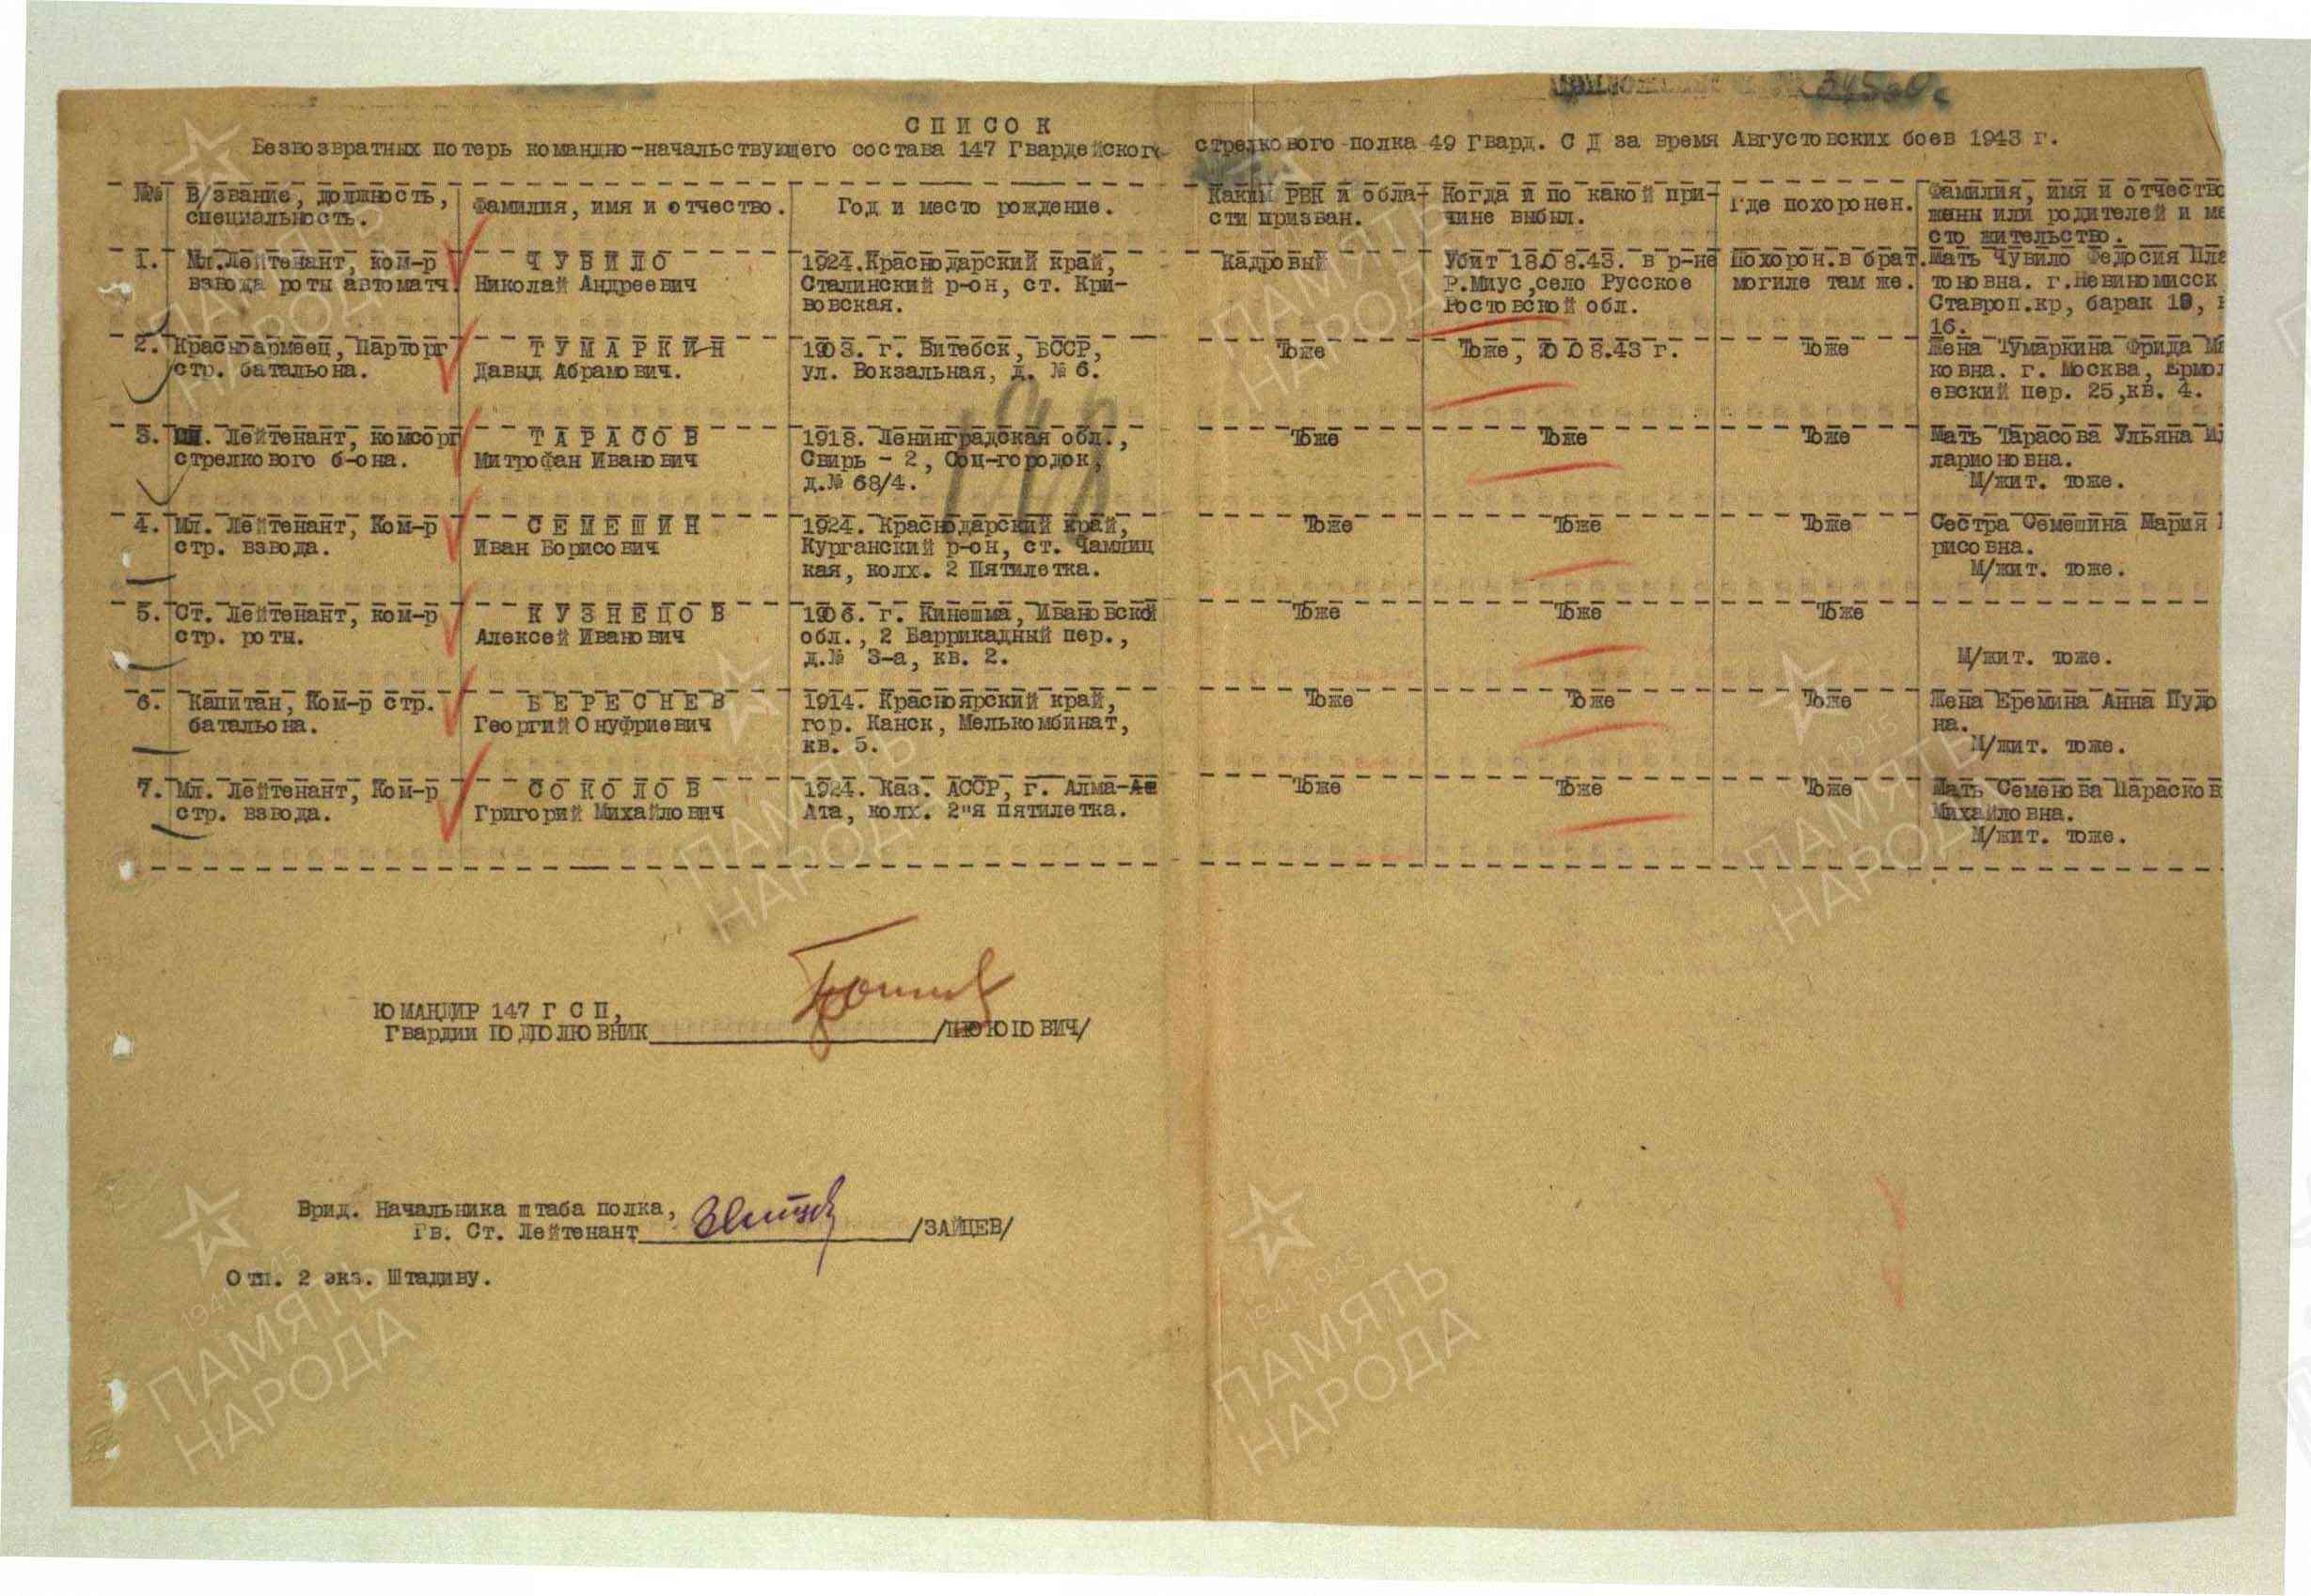 СПИСОК
Безвозвратных потерь командно-начальствующего состава 147 Гвардейского стрелкового полка 49 Гвард. С Д за время Августовских боев 1943 г.
№№ В/звание, должность, специальность. Фамилия, имя и отчество. Год и место рождение. Каким РВК и обла-
сти призван. Когда и по какой при-
чине выбыл. Где похоронен. Фамилия, имя и отчество
жены или родителей и ме
сто жительство.
1. Мл.Лейтенант, ком-р
взвода роты автоматч.
ЧУВИЛО
Николай Андреевич
1924.Краснодарский край,
Сталинский р-он, ст. Кри-
вовская.
Кадровый
Убит 18.08.43. в р-не
Р.Миус,село Русское
Ростовской обл.
Похорон.в брат.
могиле там же.
Мать Чувило Федосия Пла
тоновна. г.Невиномисск
Ставроп.кр, барак 10,
16.
2. Красноармеец, Парторг
стр. батальона.
ТУМАРКИН
Давыд Абрамович.
1903. г. Витебск, БССР,
ул. Вокзальная, д. № 6.
Тоже
Тоже, 20 08.43 г.
Тоже
Жена Тумаркина Фрида М
ковна. г. Москва, Ермол
евский пер. 25,кв. 4.
3. Мл. Лейтенант, комсорг
стрелкового б-она.
ТАРАСОВ
Митрофан Иванович
1918. Ленинградская обл.,
Свирь - 2, Соц-городок,
д.№ 68/4.
Тоже
Тоже
Тоже
Мать Тарасова Ульяна Ил
ларионовна.
М/жит. тоже.
4. Мл. Лейтенант, Ком-р
стр. взвода.
СЕМЕШИН
Иван Борисович
1924. Краснодарский край,
Курганский р-он, ст. Чамлиц
кая, колх. 2 Пятилетка.
Тоже
Тоже
Тоже
Сестра Семешина Мария
рисовна.
М/жит. тоже.
5. Ст. Лейтенант, ком-р
стр. роты.
КУЗНЕЦОВ
Алексей Иванович
1906. г. Кинешма, Ивановской
обл., 2 Баррикадный пер.,
д.№ 3-а, кв. 2.
Тоже
Тоже
Тоже
М/жит. тоже.
6. Капитан, Ком-р стр.
батальона.
БЕРЕСНЕВ
Георгий Онуфриевич
1914. Красноярский край,
гор. Канск, Мелькомбинат,
кв. 5.
Тоже
Тоже
Тоже
Жена Еремина Анна Пудо
на.
М/жит. тоже.
7. Мл. Лейтенант, Ком-р
стр. взвода.
СОКОЛОВ
Григорий Михайлович
1924. Каз. АССР, г. Алма-Ае
Ата, колх. 2"я пятилетка.
Тоже
Тоже
Тоже
Мать Семенова Парасков
Михайловна.
М/жит. тоже.
КОМАНДИР 147 Г С П,
Гвардии ПОДПОЛКОВНИК /ПРОКОПОВИЧ/
Врид. Начальника штаба полка,
Гв. Ст. Лейтенант /ЗАЙЦЕВ/
Отп. 2 экз. Штадиву.
1941-1945
ПАМЯТЬ
НАРОДА